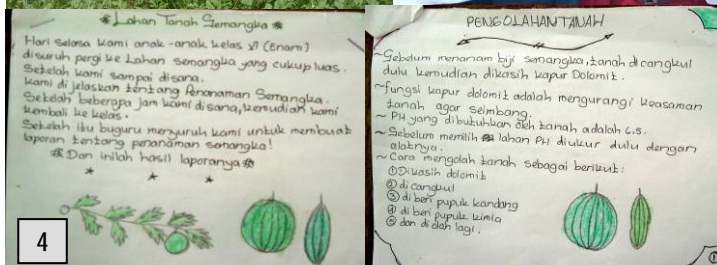 Lahan Tanah Semangka
Hari Selasa kami anak-anak kelas VI (Enam)
disuruh pergi ke Lahan semangka yang cukup luas.
Setelah kami sampai disana.
Kami di jelaskan tentang Penanaman Semangka.
Setelah beberapa jam kami disana, kemudian kami
kembali ke kelas.
Setelah itu buguru menyuruh kami untuk membuat
laporan tentang penanaman semangka!
Dan inilah hasil laporanya
4
PENGOLAHAN TANAH
~Sebelum menanam biji semangka, tanah dicangkul
dulu kemudian dikasih kapur Dolomit.
~fungsi kapur dolomit adalah mengurangi keasaman
tanah agar seimbang.
~ PH yang dibutuhkan oleh tanah adalah 6.5.
~Sebelum memilih lahan PH diukur dulu dengan
alatnya.
~Cara mengolah tanah sebagai berikut:
①Dikasih dolomit
②di cangkul
③di beri pupuk kandang
④di beri pupuk kimia
⑤dan di dah lagi.
①